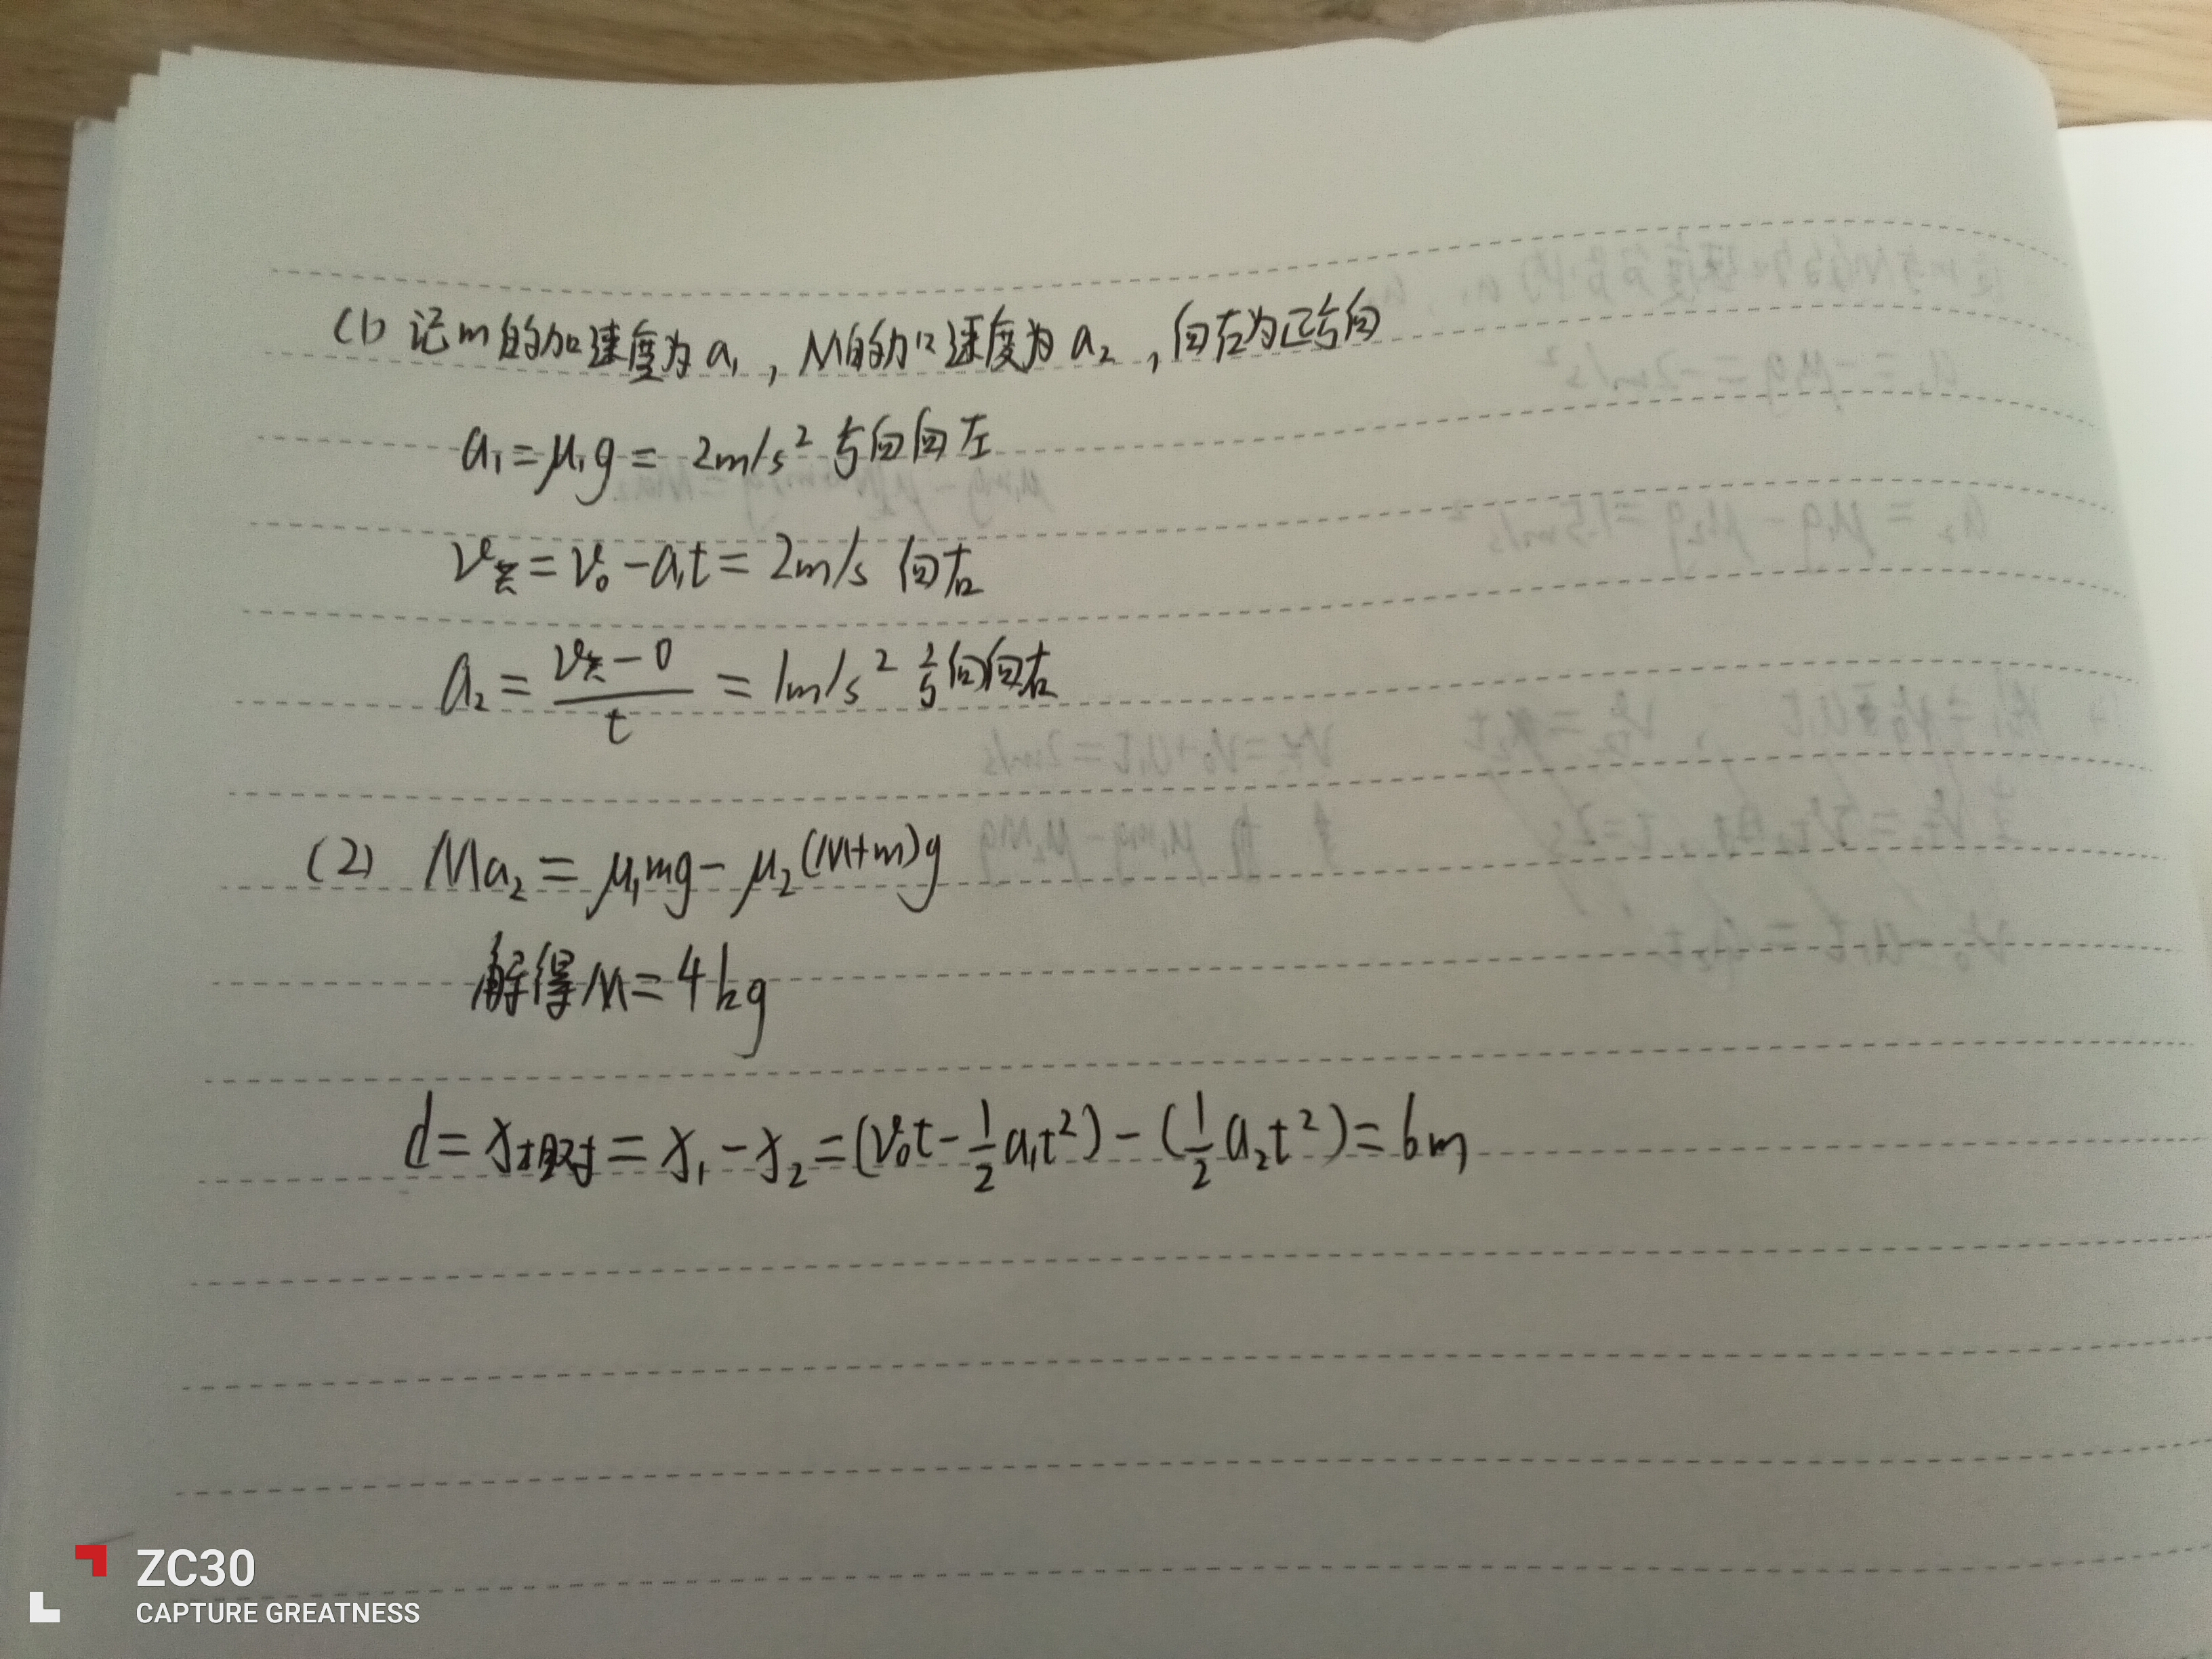 (1) 记m的加速度为a₁，M的加速度为a₂，向右为正方向
a₁=μ₁g=2m/s² 方向向左
v共=v₀-a₁t=2m/s 向右
a₂=(v共-0)/t=1m/s² 方向向右
(2) Ma₂=μ₁mg-μ₂(M+m)g
解得M=4kg
d=x相对=x₁-x₂=(v₀t-½a₁t²)-(½a₂t²)=6m
ZC30
CAPTURE GREATNESS